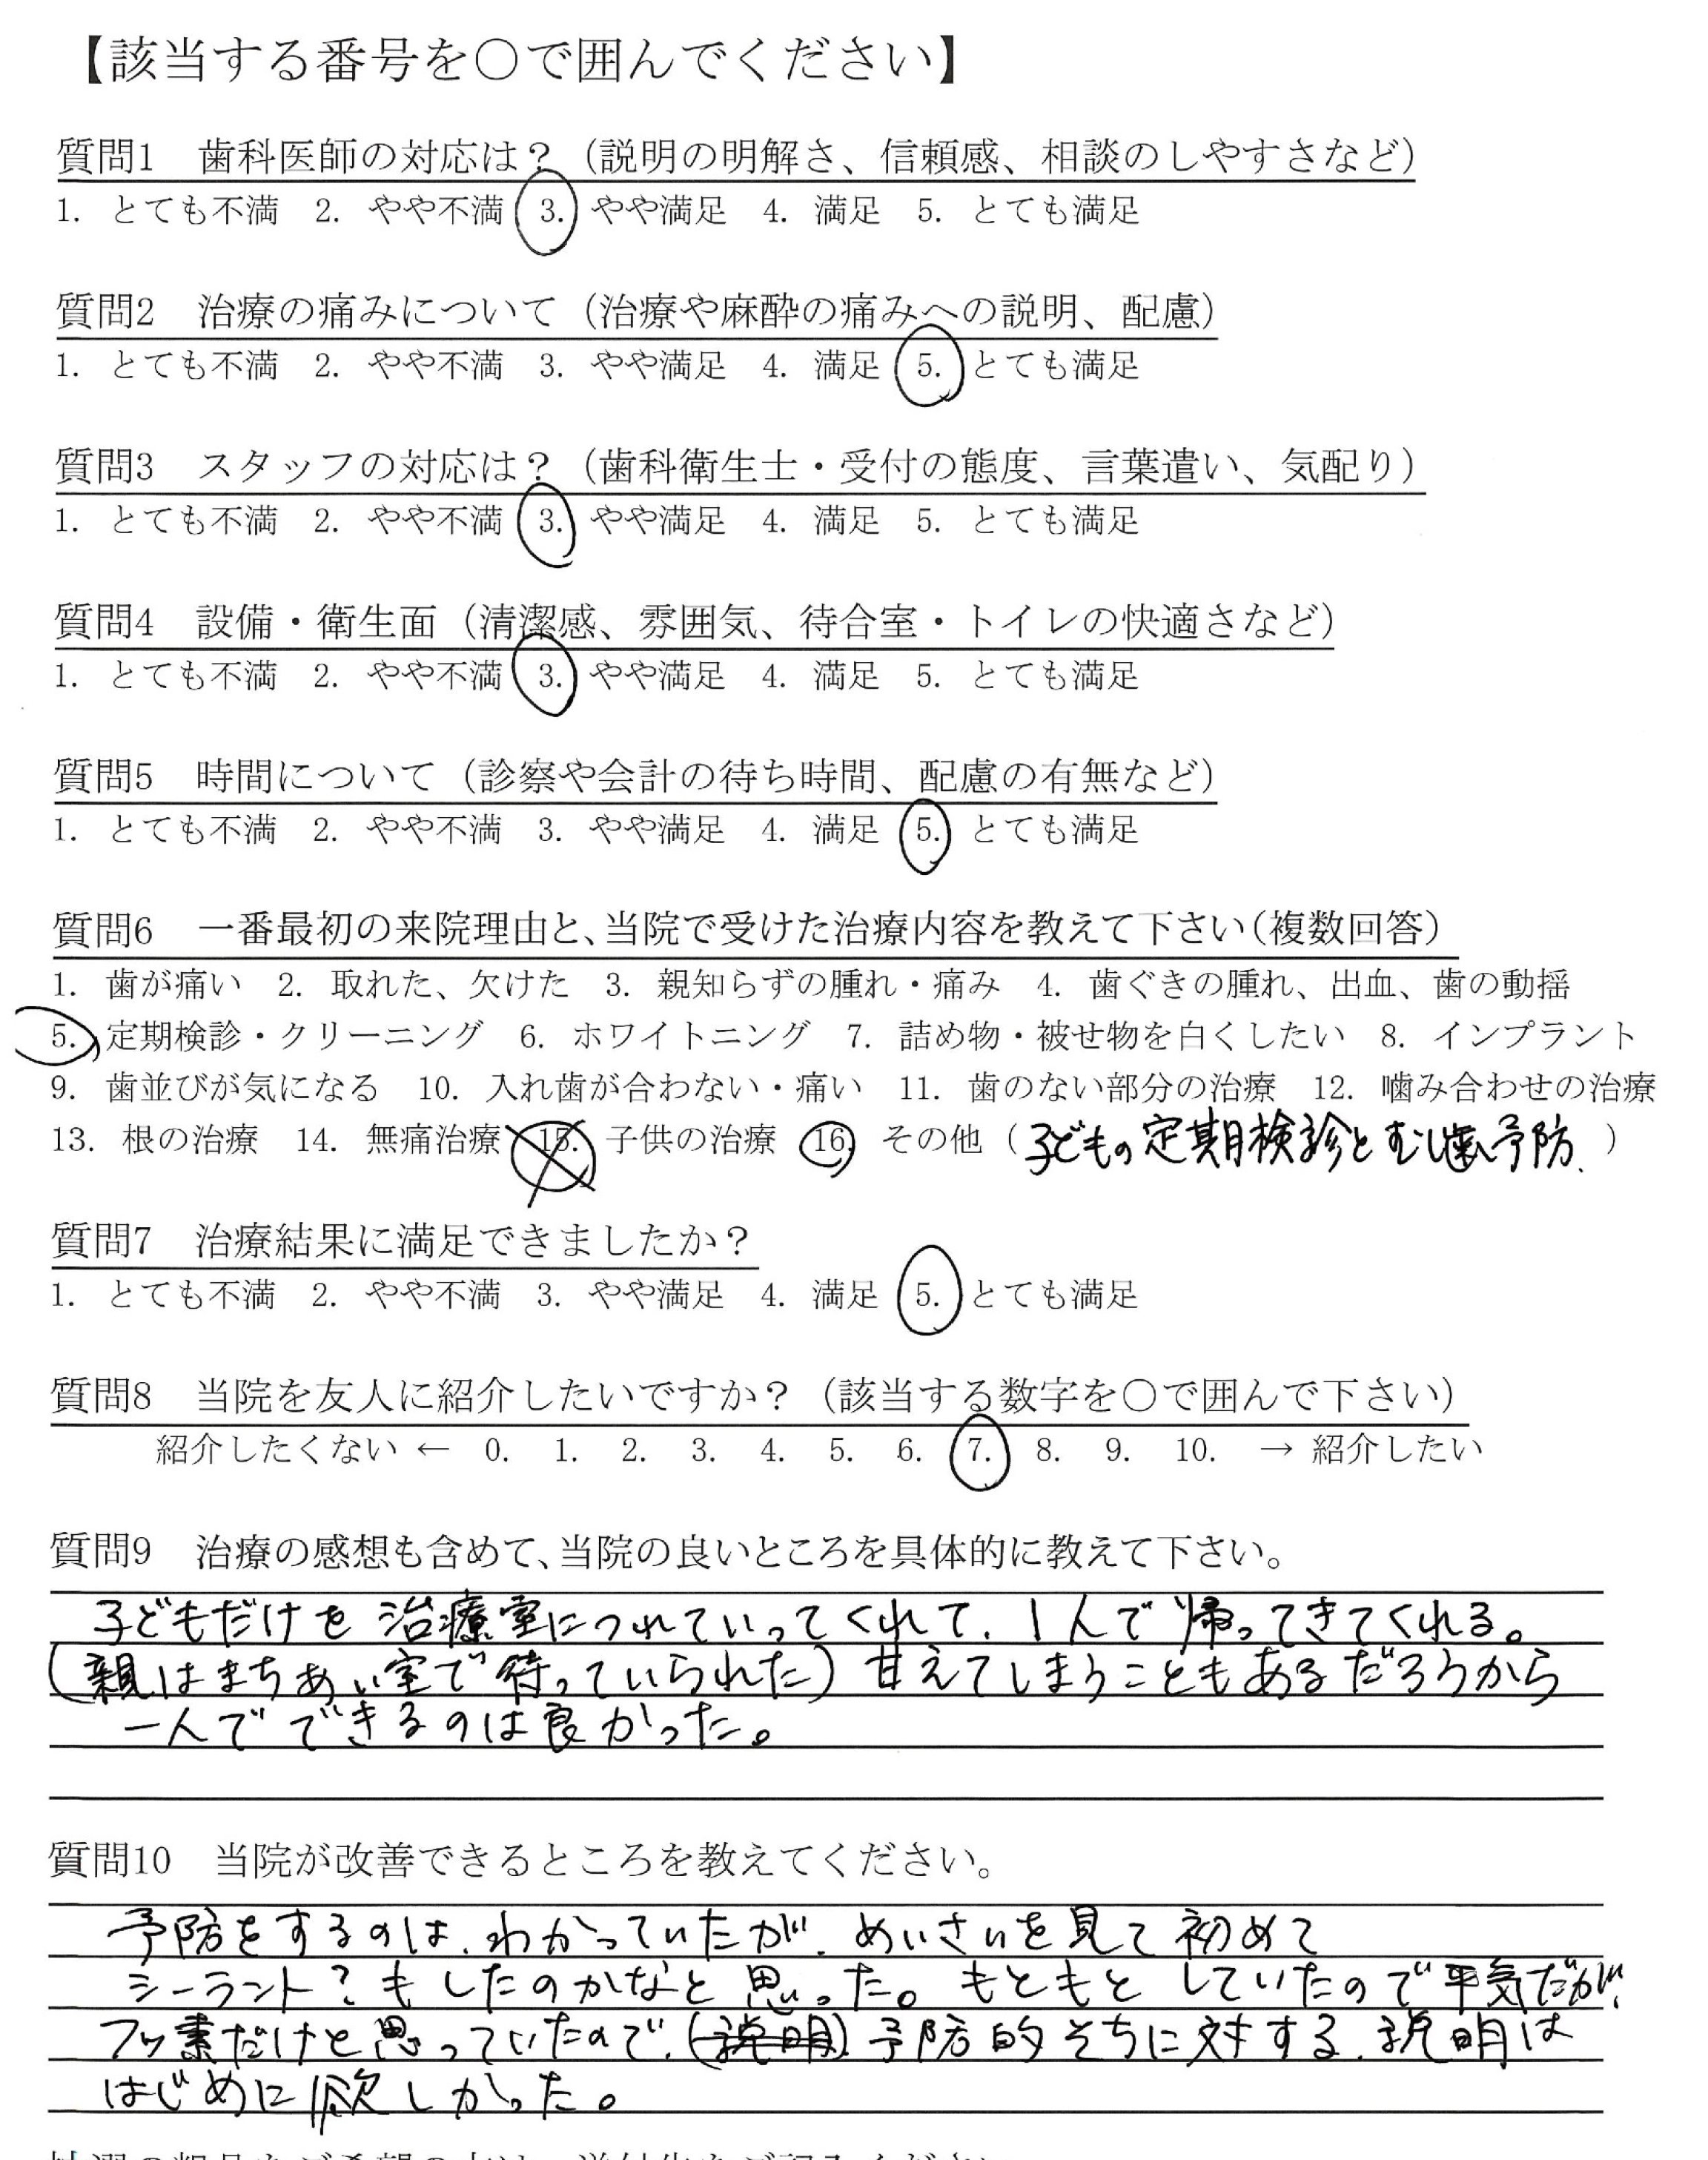 【該当する番号を○で囲んでください】
質問1 歯科医師の対応は？（説明の明解さ、信頼感、相談のしやすさなど）
1. とても不満 2. やや不満 3. やや満足 4. 満足 5. とても満足
質問2 治療の痛みについて（治療や麻酔の痛みへの説明、配慮）
1. とても不満 2. やや不満 3. やや満足 4. 満足 5. とても満足
質問3 スタッフの対応は？（歯科衛生士・受付の態度、言葉遣い、気配り）
1. とても不満 2. やや不満 3. やや満足 4. 満足 5. とても満足
質問4 設備・衛生面（清潔感、雰囲気、待合室・トイレの快適さなど）
1. とても不満 2. やや不満 3. やや満足 4. 満足 5. とても満足
質問5 時間について（診察や会計の待ち時間、配慮の有無など）
1. とても不満 2. やや不満 3. やや満足 4. 満足 5. とても満足
質問6 一番最初の来院理由と、当院で受けた治療内容を教えて下さい（複数回答）
1. 歯が痛い 2. 取れた、欠けた 3. 親知らずの腫れ・痛み 4. 歯ぐきの腫れ、出血、歯の動揺
5. 定期検診・クリーニング 6. ホワイトニング 7. 詰め物・被せ物を白くしたい 8. インプラント
9. 歯並びが気になる 10. 入れ歯が合わない・痛い 11. 歯のない部分の治療 12. 噛み合わせの治療
13. 根の治療 14. 無痛治療 15. 子供の治療 16. その他（子どもの定期検診とむし歯予防.）
質問7 治療結果に満足できましたか？
1. とても不満 2. やや不満 3. やや満足 4. 満足 5. とても満足
質問8 当院を友人に紹介したいですか？（該当する数字を○で囲んで下さい）
紹介したくない ← 0. 1. 2. 3. 4. 5. 6. 7. 8. 9. 10. → 紹介したい
質問9 治療の感想も含めて、当院の良いところを具体的に教えて下さい。
子どもだけを治療室につれていってくれて、1人で帰ってきてくれる。
（親はまちあい室で待っていられた）甘えてしまうこともあるだろうから
一人でできるのは良かった。
質問10 当院が改善できるところを教えてください。
予防をするのは、わかっていたが、めいさいを見て初めて
シーラント？もしたのかなと思った。もともとしていたので平気だが、
フッ素だけと思っていたので、（説明）予防的そちに対する、説明は
はじめに欲しかった。